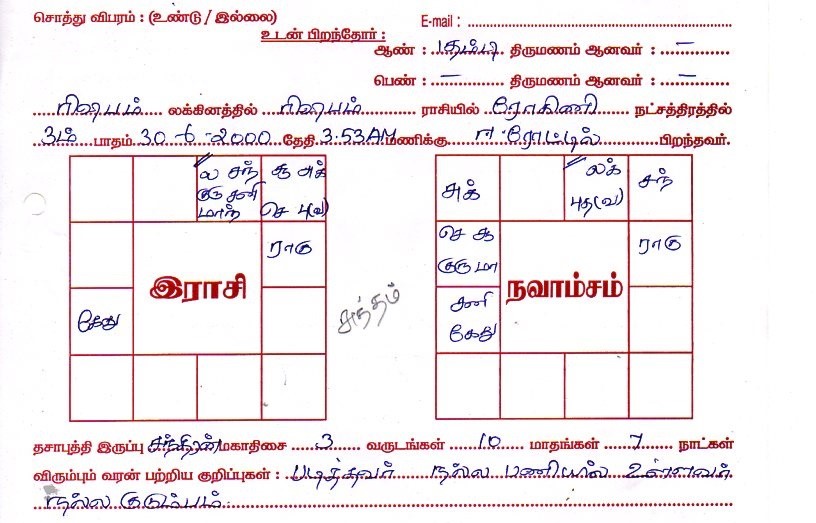 சொத்து விபரம் : (உண்டு / இல்லை)
E-mail :
உடன் பிறந்தோர் :
ஆண் : தம்பி திருமணம் ஆனவர் : –
பெண் : – திருமணம் ஆனவர் : –
ரிஷபம் லக்கினத்தில் ரிஷபம் ராசியில் ரோகிணி நட்சத்திரத்தில்
3ம் பாதம் 30-6-2000 தேதி 3.53AM மணிக்கு ஈரோட்டில் பிறந்தவர்.
ல சந் சூ சுக்
குரு சனி
மாந் செ பு(வ)
ராகு
இராசி
கேது
சுத்தம்
சுக் லக் சந்
புத(வ)
செ சூ ராகு
குரு மா
நவாம்சம்
சனி
கேது
தசாபுத்தி இருப்பு சந்திரன் மகாதிசை 3 வருடங்கள் 10 மாதங்கள் 7 நாட்கள்
விரும்பும் வரன் பற்றிய குறிப்புகள் : படித்தவர் நல்ல பணியில் உள்ளவர்
நல்ல குடும்பம்